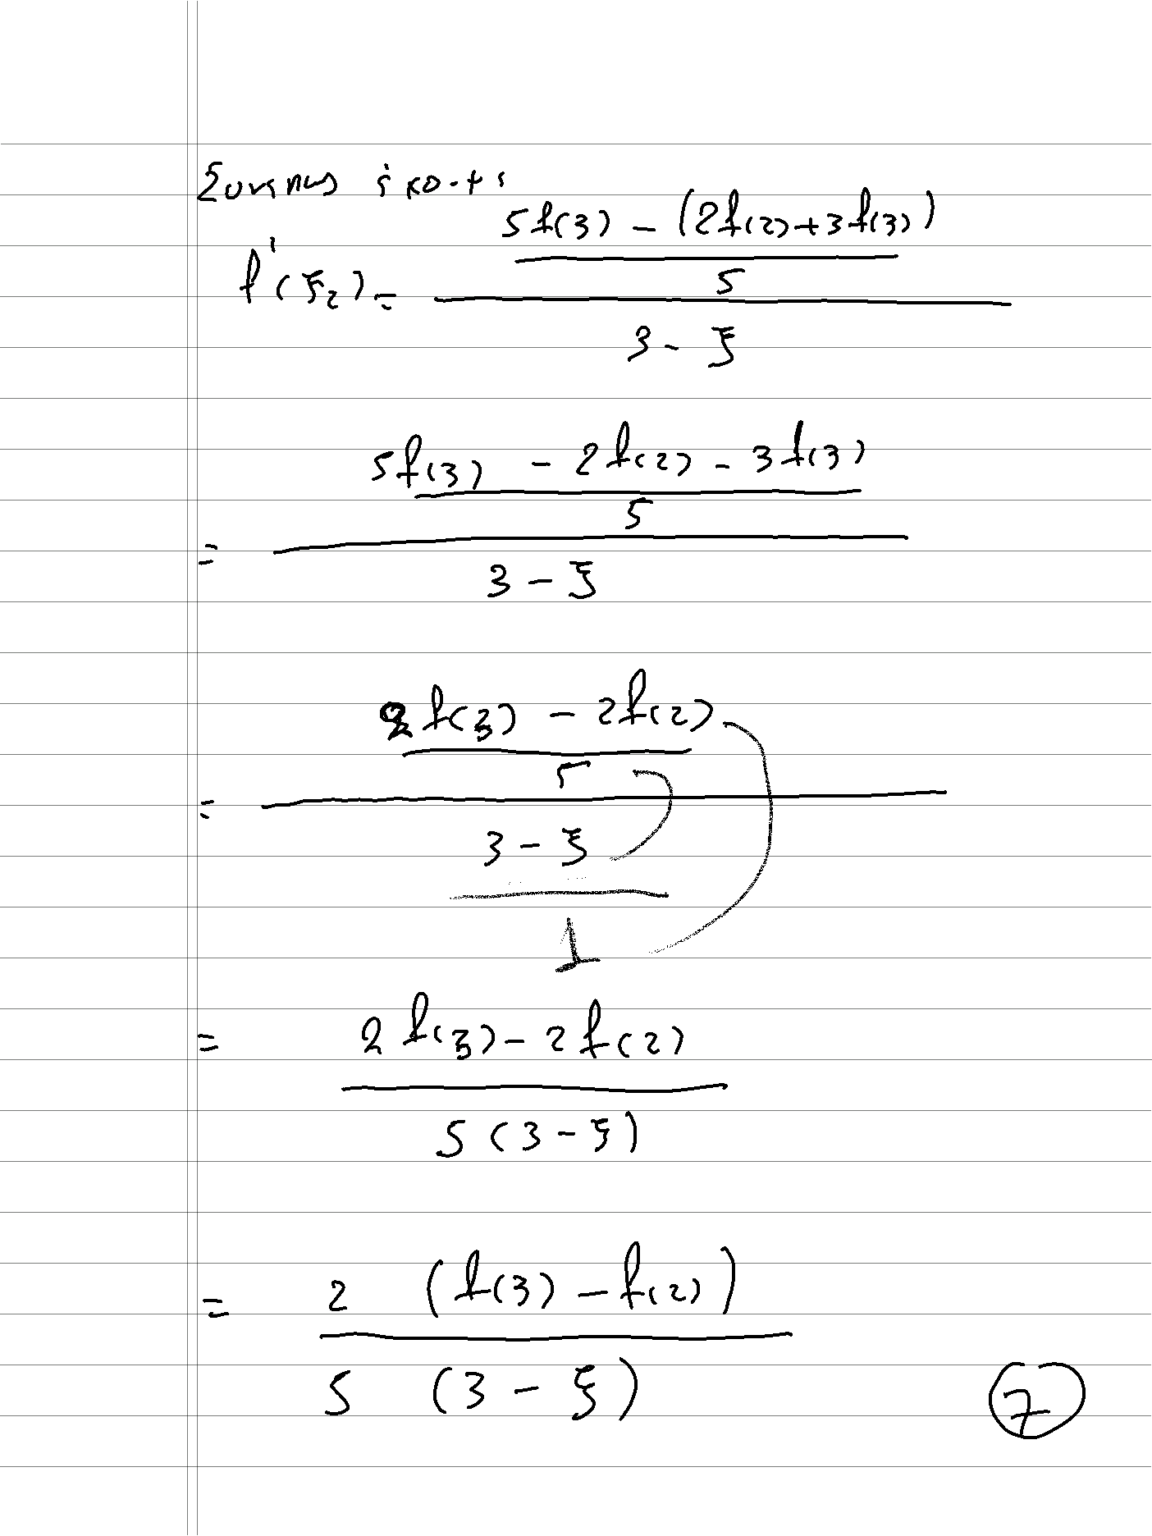 Συνεπως έχουμε
f'(ξ₂) = ((5f(3) - (2f(2)+3f(3)))/5)/(3 - ξ)
= ((5f(3) - 2f(2) - 3f(3))/5)/(3 - ξ)
= ((2f(3) - 2f(2))/5)/((3 - ξ)/1)
= (2f(3) - 2f(2))/(5(3 - ξ))
= (2 (f(3) - f(2)))/(5 (3 - ξ))
7